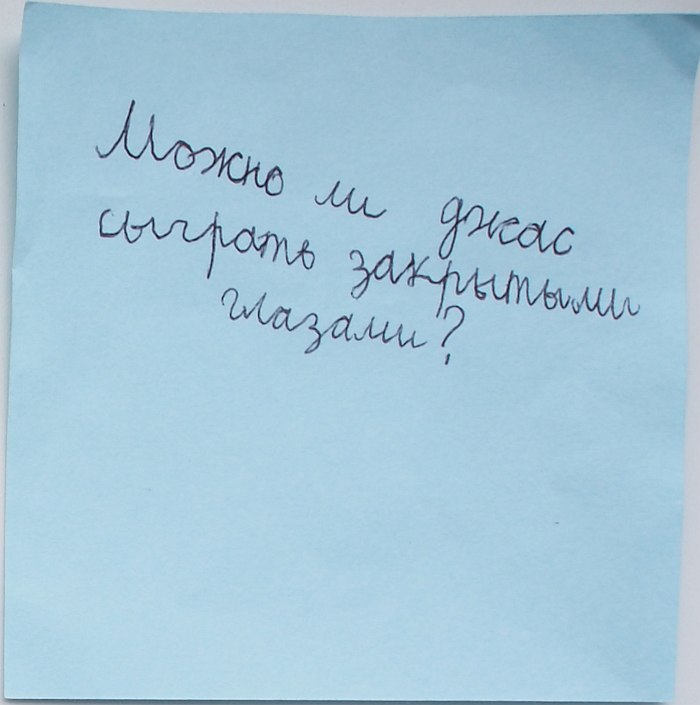 Можно ли джас
сыграть закрытыми
глазами?